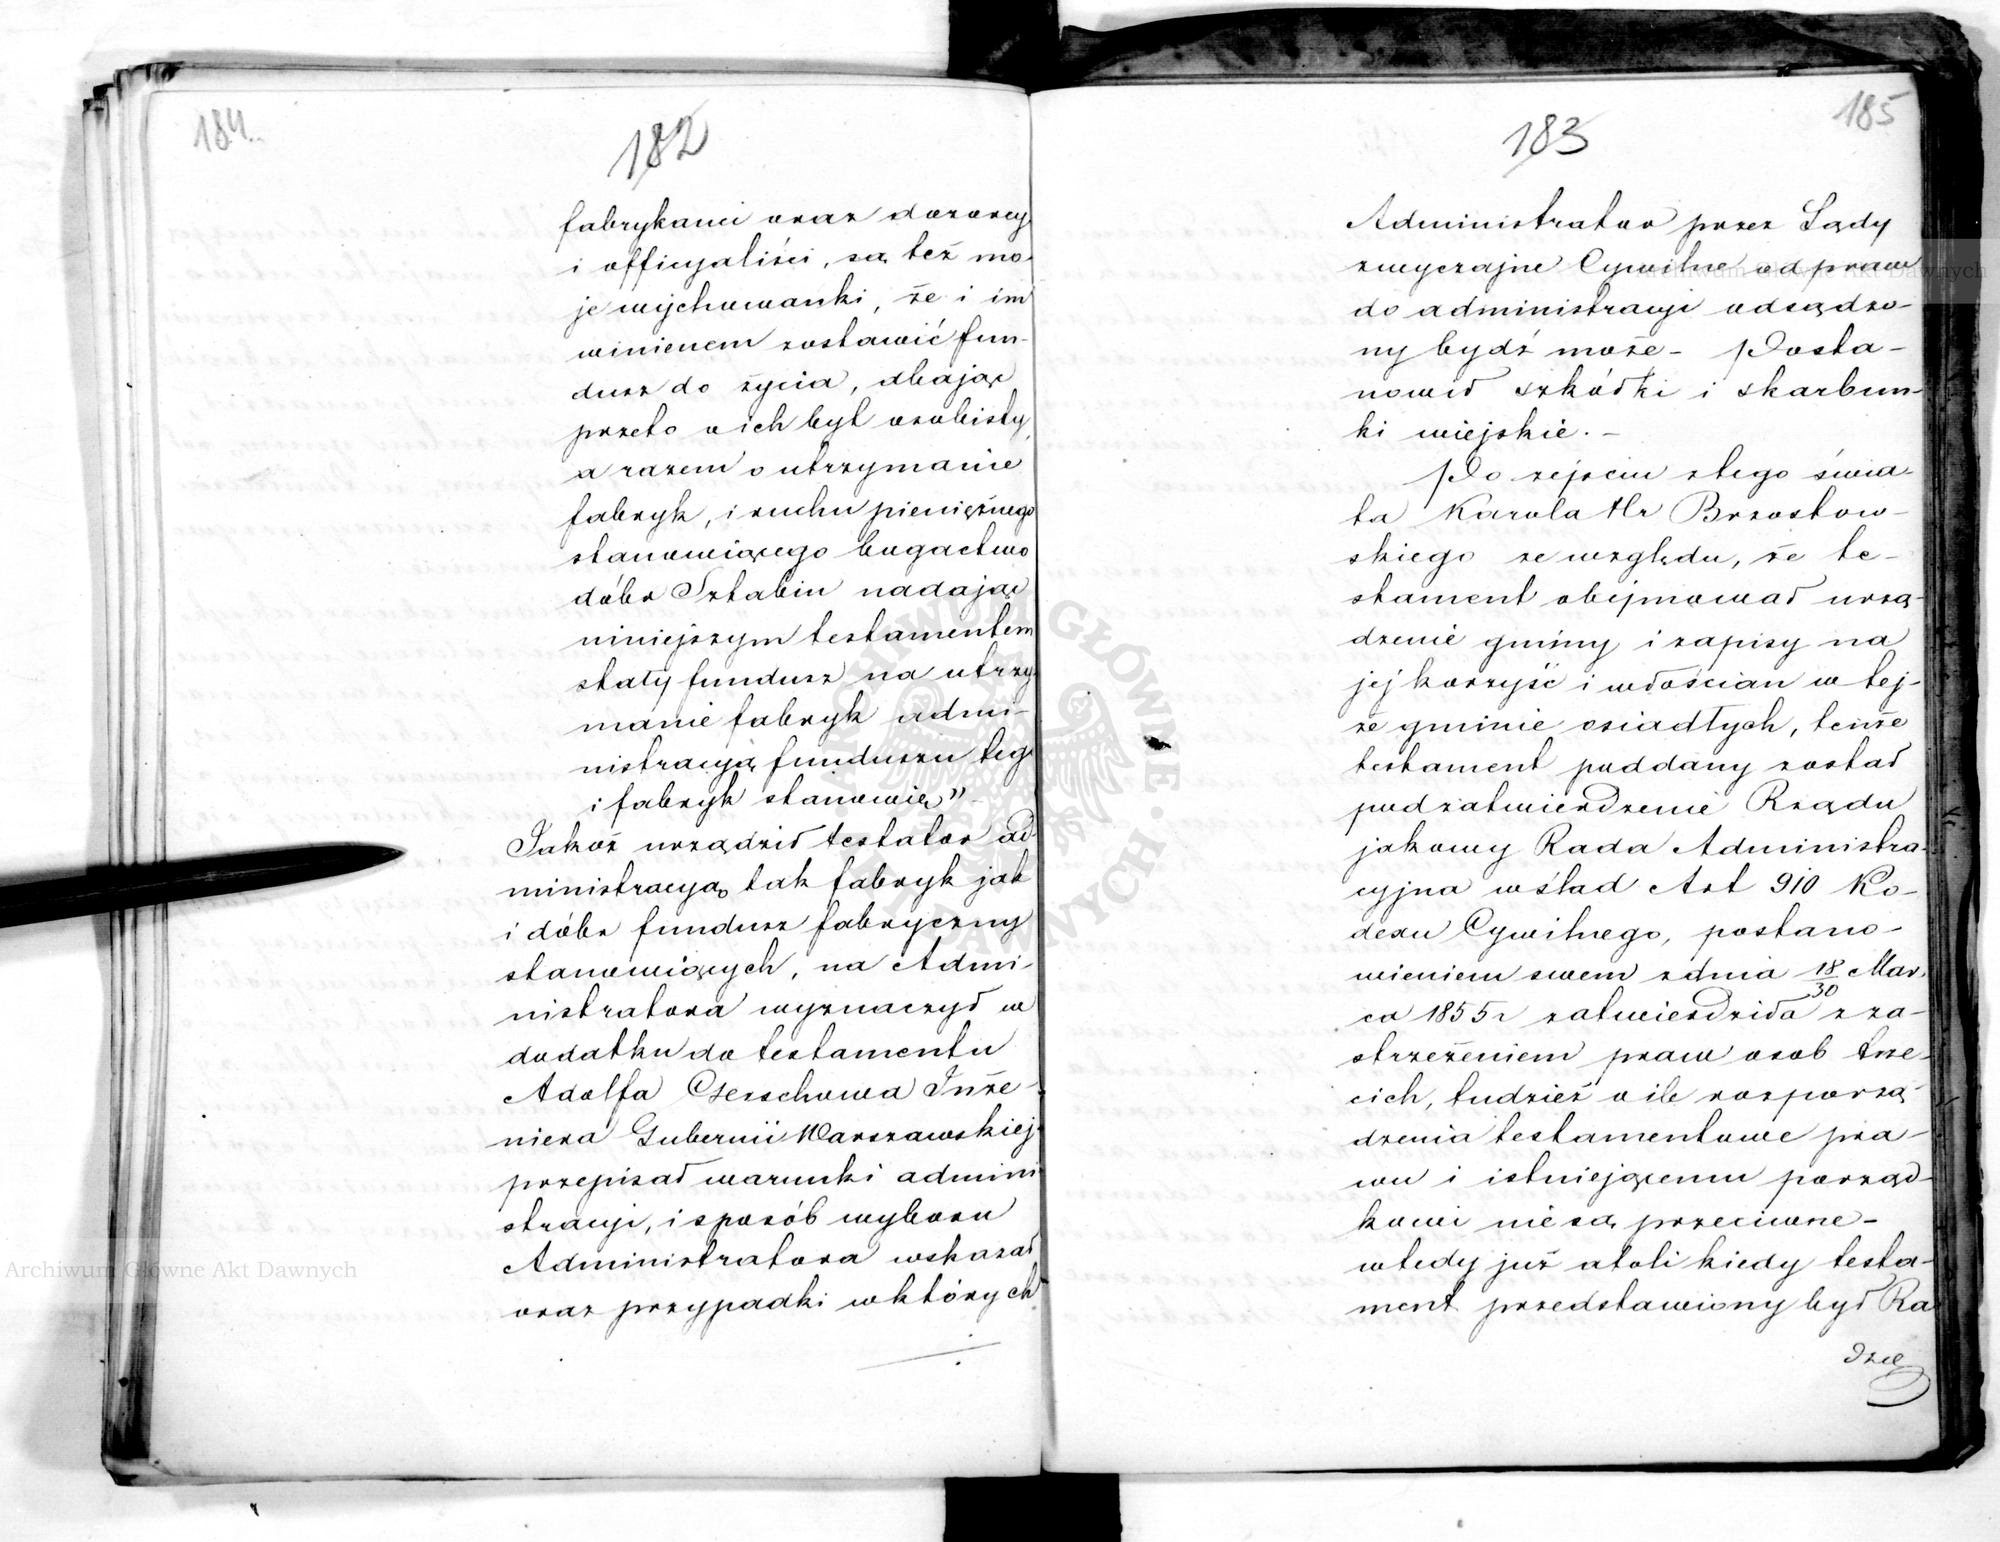 184.
182
fabrykanci oraz dozorcy
i officyaliści, są też mo-
je wychowanki, że i im
winienem zostawić fun-
dusz do życia, dbając
przeto o ich byt osobisty,
a razem o utrzymanie
fabryk, i ruchu pieniężnego
stanowiącego bogactwo
dóbr Sztabin nadając
niniejszym testamentem
stały fundusz na utrzy-
manie fabryk admi-
nistracyją funduszu tego
i fabryk stanowię"
Jakoż urządził testator ad-
ministracyą tak fabryk jak
i dóbr fundusz fabryczny
stanowiących, na Admi-
nistratora wyznaczył w
dodatku do testamentu
Adolfa Gerschowa Inże-
niera Gubernii Warszawskiej
przepisał warunki admini-
stracyi, i sposób wyboru
Administratora wskazał
oraz przypadki w których
185
183
Administrator przez Sądy
zwyczajne Cywilne od praw
do administracyi odsądzo-
ny bydź może - Posta-
nowił szkółki i skarbun-
ki wiejskie. -
Po zejściu z tego świa-
ta Karola Hr Brzostow-
skiego ze względu, że te-
stament obejmował urzą-
dzenie gminy i zapisy na
jej korzyść i włościan w tej-
że gminie osiadłych, tenże
testament poddany został
pod zatwierdzenie Rządu
jakowy Rada Administra-
cyjna w ślad Art 910 Ko-
dexu Cywilnego, postano-
wieniem swem z dnia 18/30 Mar-
ca 1855 r zatwierdziła z za-
strzeżeniem praw osob trze-
cich, tudzież o ile rozporzą-
dzenia testamentowe pra-
wu i istniejącemu porząd-
kowi nie są przeciwne -
wtedy już atoli kiedy testa-
ment przedstawiony był Ra-
dzie
Archiwum Główne Akt Dawnych
Archiwum Główne Akt Dawnych
ARCHIWUM GŁÓWNE · AKT DAWNYCH ·